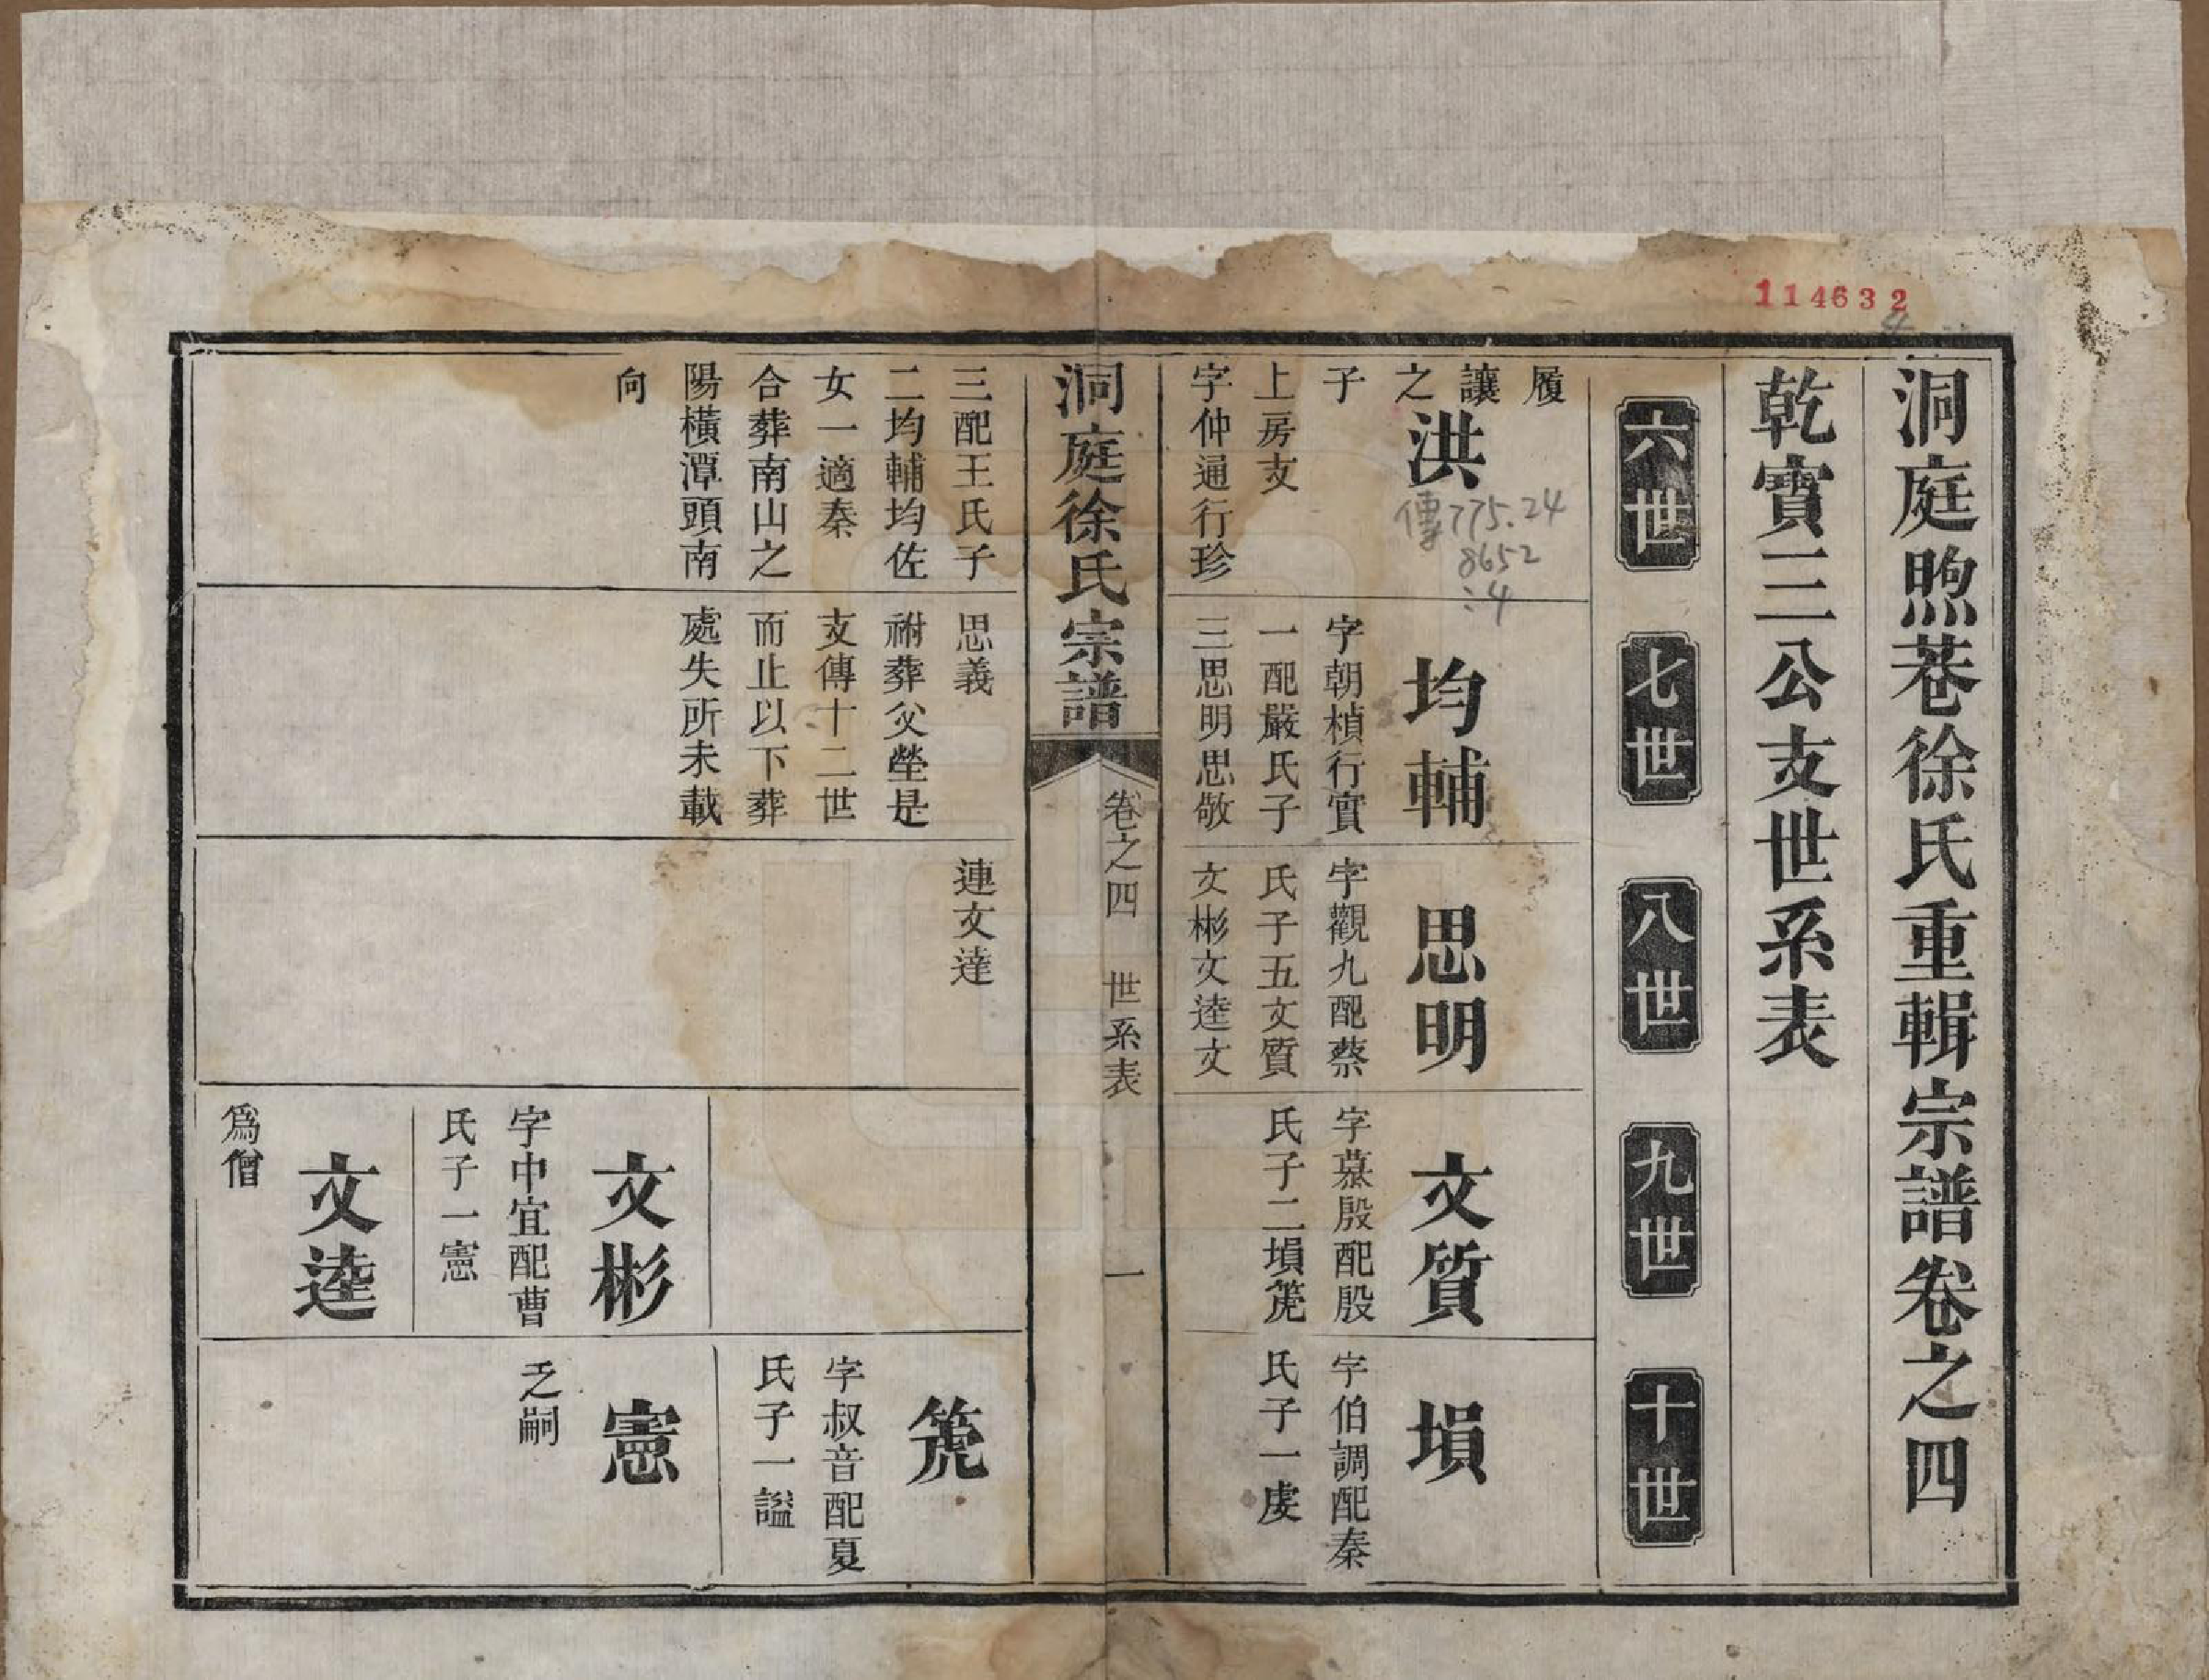 114632
4
洞庭煦巷徐氏重輯宗譜卷之四
乾實三公支世系表
六世
七世
八世
九世
十世
履讓之子
洪
上房支
字仲通行珍
傳775.24
8652
:4
均輔
字朝楨行實
一配嚴氏子
三思明思敬
思明
字觀九配蔡
氏子五文質
文彬文逵文
文質
字慕殷配殷
氏子二塤箎
塤
字伯調配秦
氏子一虔
洞庭徐氏宗譜
卷之四
世系表
一
三配王氏子
二均輔均佐
女一適秦
合葬南山之
陽橫潭頭南
向
思義
祔葬父塋是
支傳十二世
而止以下葬
處失所未載
連文達
文彬
字中宜配曹
氏子一憲
文逵
為僧
箎
字叔音配夏
氏子一謚
憲
乏嗣